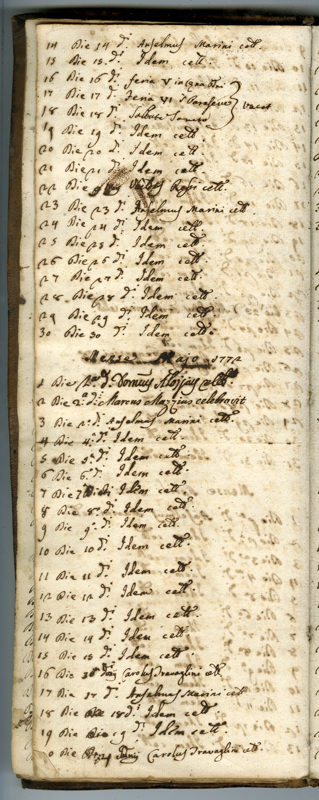 14 Die 14 D. Anselmus Marini cett.
15 Die 15. D. Idem cett.
16 Die 16 D. feria V in
17 Die 17 D. Feria VI Vacat
18 Die 18 D. Sabato Santo
19 Die 19 D. Idem cett.
20 Die 20 D. Idem cett.
21 Die 21 D. Idem cett.
22 Die Rossi cett.
23 Die 23 D. Anselmus Marini cett.
24 Die 24 D. Idem cett.
25 Die 25 D. Idem cett.
26 Die 26 D. Idem cett.
27 Die 27 D. Idem cett.
28 Die 28 D. Idem cett.
29 Die 29 D. Idem cett.
30 Die 30 D. Idem cett.
Mense Majo 1772
1 Die D. Aloysius
2 Die 2. D. Marcus celebravit
3 Die D. Anselmus Marini cett.
4 Die 4. D. Idem cett.
5 Die 5. D. Idem cett.
6 Die 6. D. Idem cett.
7 Die 7 Idem cett.
8 Die 8. D. Idem cett.
9 Die 9. D. Idem cett.
10 Die 10. D. Idem cett.
11 Die 11 D. Idem cett.
12 Die 12 D. Idem cett.
13 Die 13 D. Idem cett.
14 Die 14 D. Idem cett.
15 Die 15 D. Idem cett.
16 Die Carolus Travaglini cett.
17 Die 17 D. Anselmus Marini cett.
18 Die 18 D. Idem cett.
19 Die 19 D. Idem cett.
Carolus Travaglini cett.